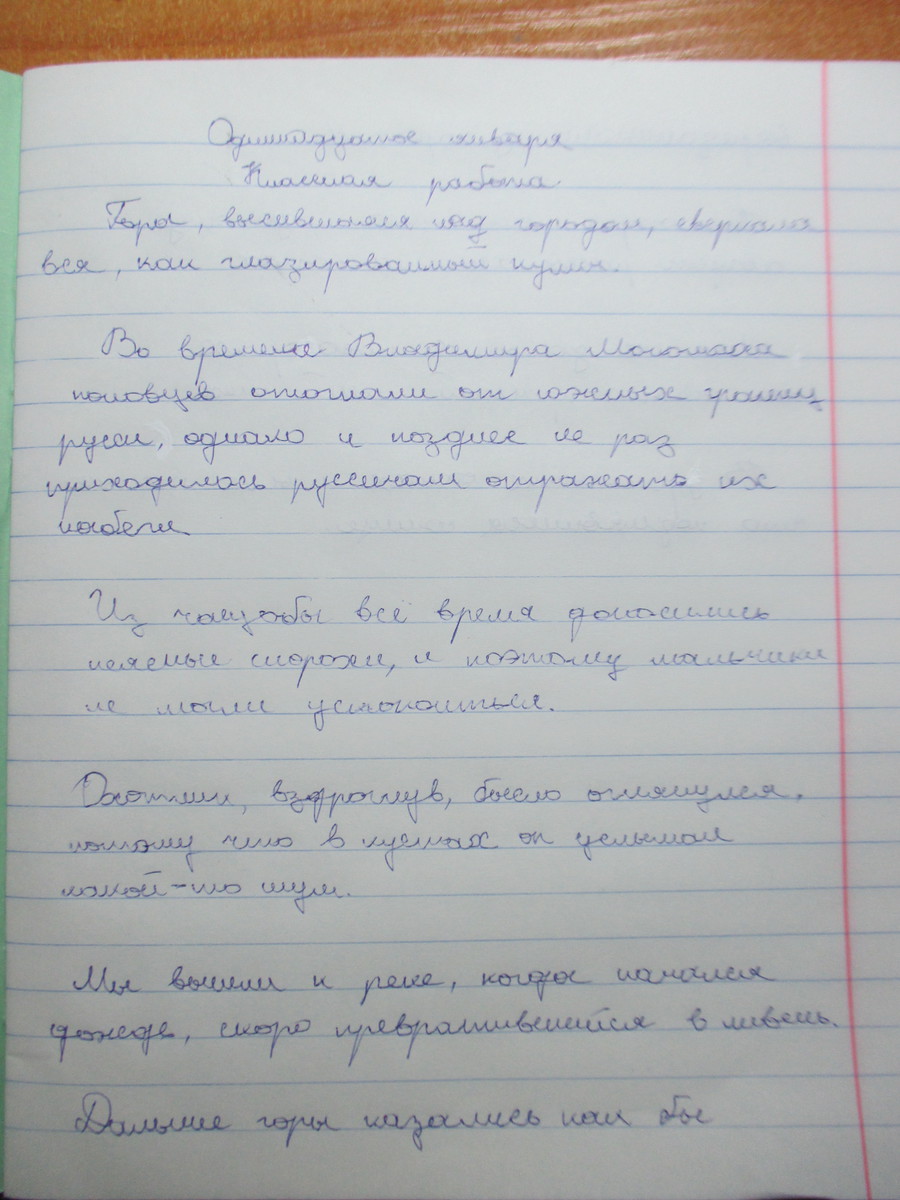 Одинадцатое января
Классная работа.
Гора, высившаяся над городом, сверкала
вся, как глазированный кулич.
Во времена Владимира Мономаха
половцев отогнали от южных границ
руси, однако и позднее не раз
приходилось руссичам отражать их
набеги.
Из чащобы всё время доносились
неясные шорохи, и поэтому мальчики
не могли успокоиться.
Охотник, вздрогнув, бысло оглянулся,
потому что в кустах он услышал
какой-то шум.
Мы вышли к реке, когда начался
дождь, скоро превратившейся в ливень.
Дальние горы казались как бы